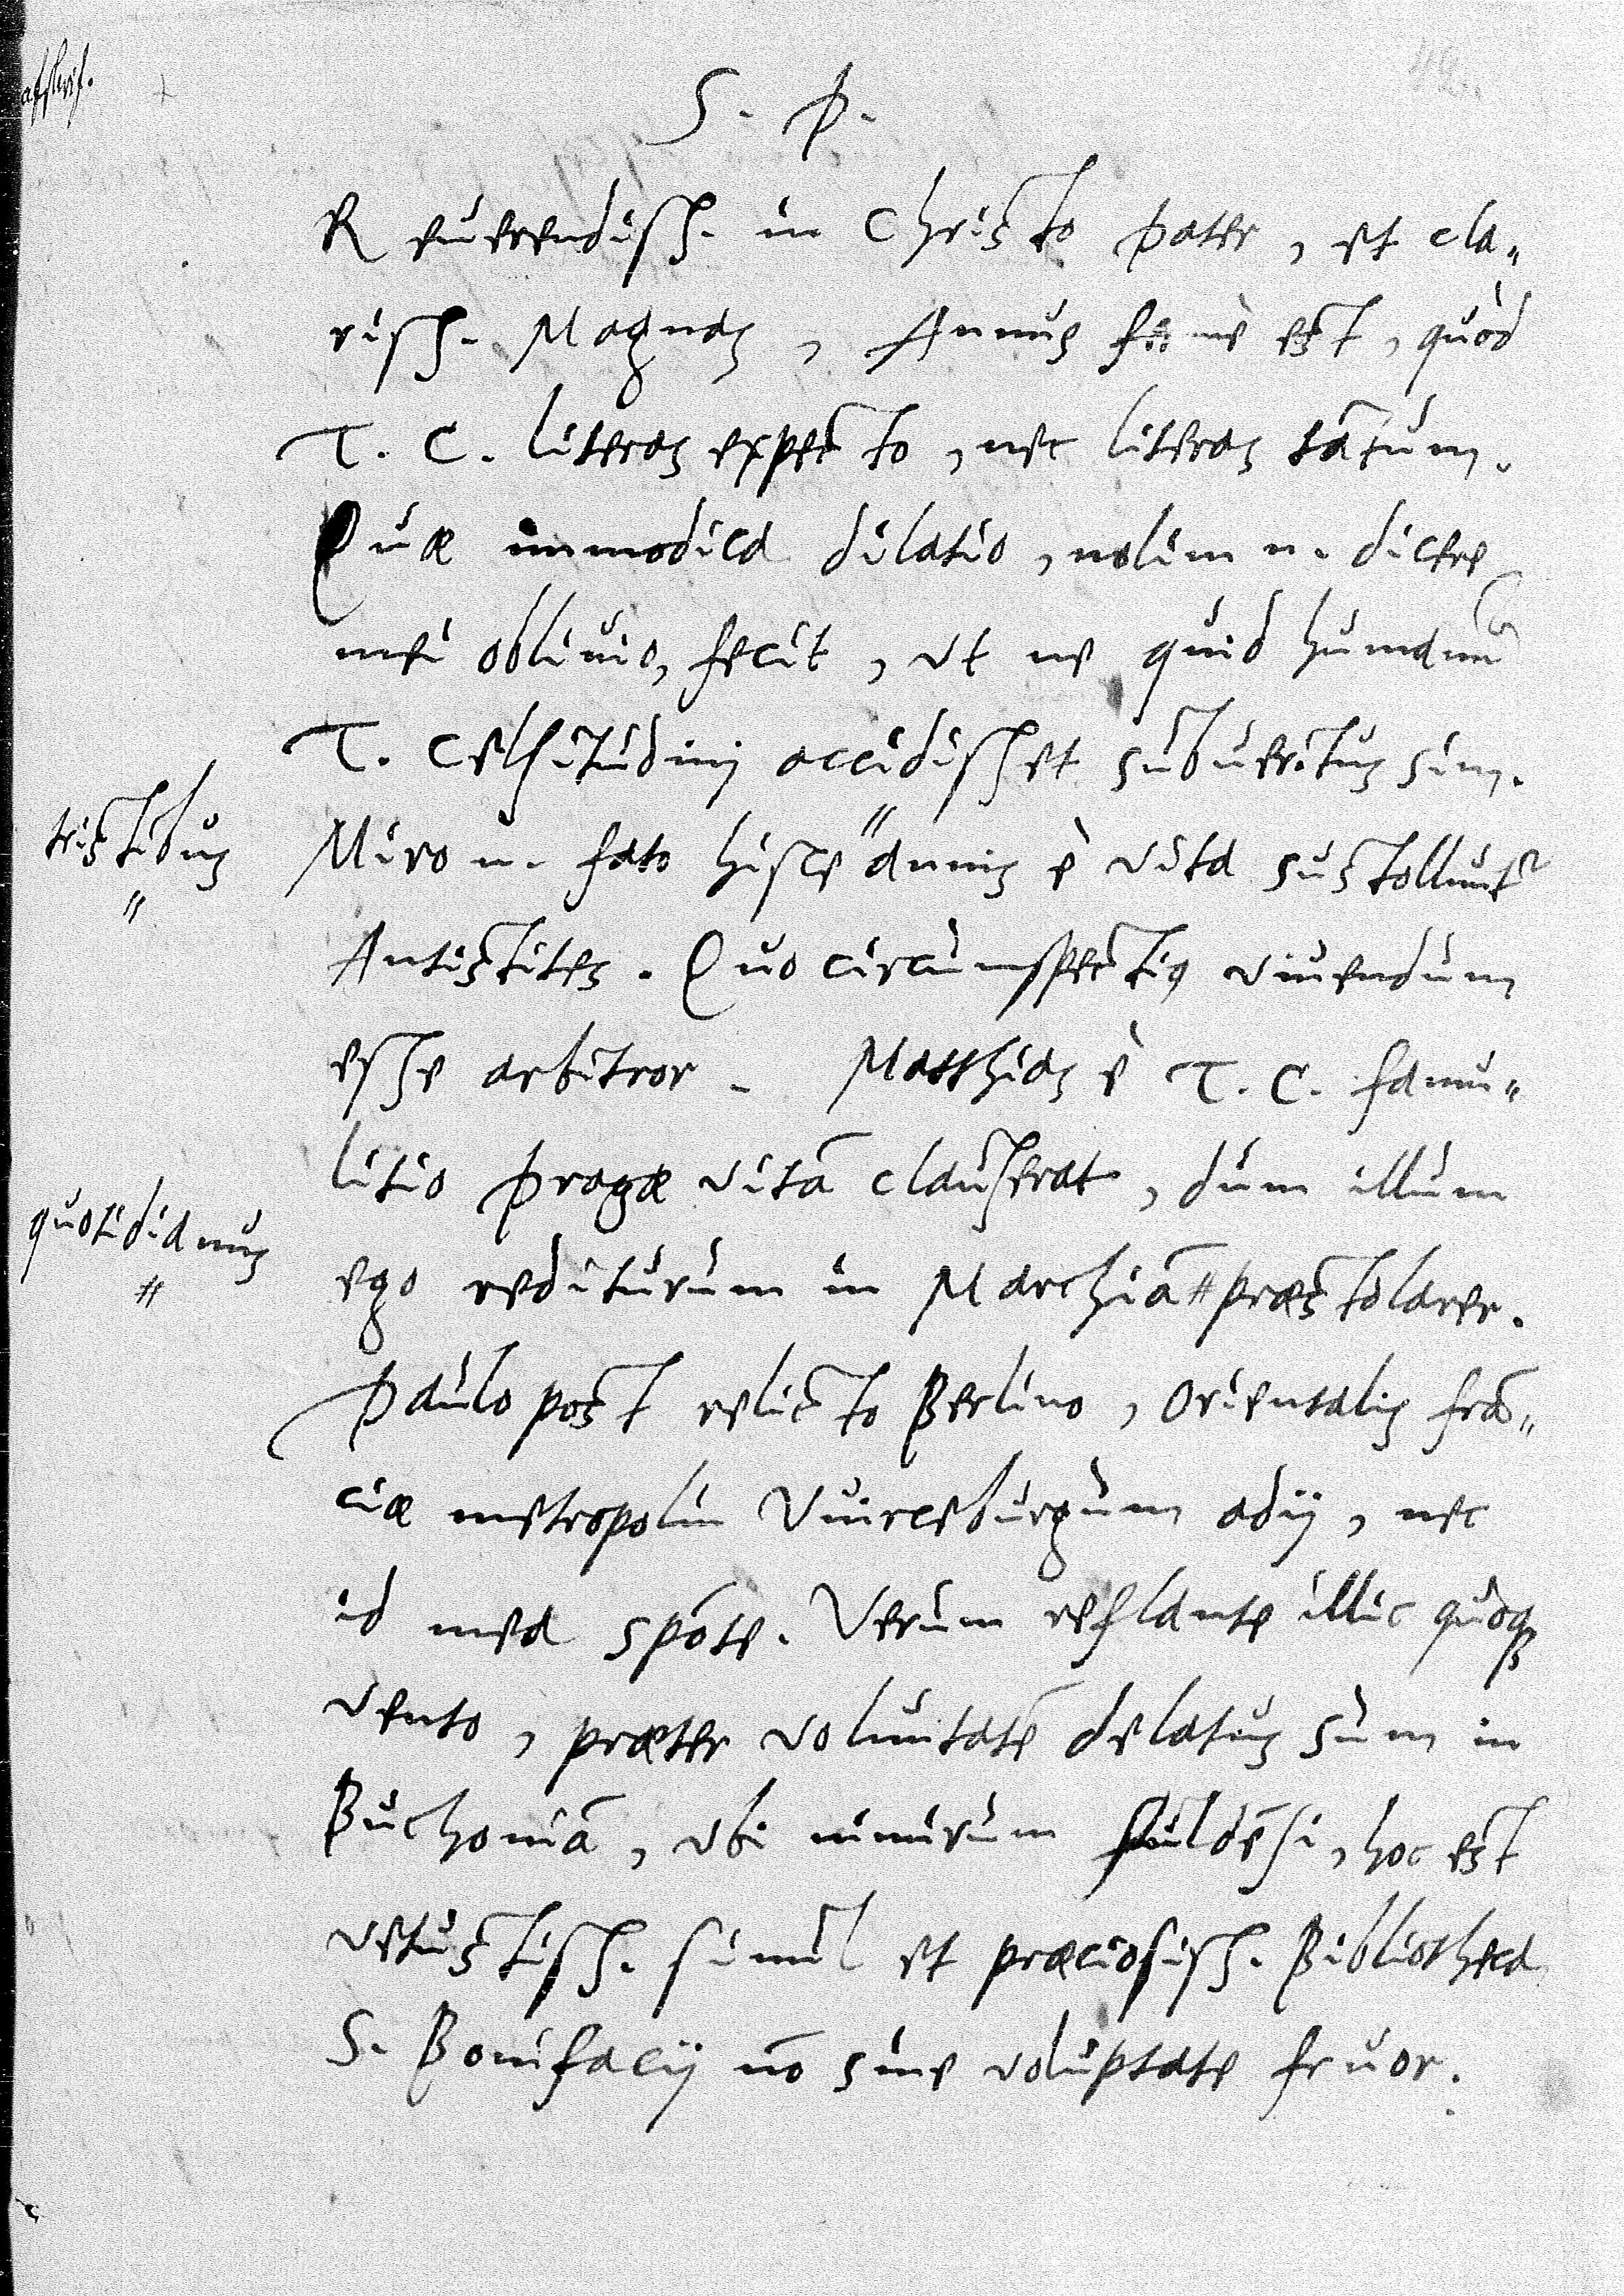 S. P.
Reuerendiss. in Christo pater, et cla„
riss. Magnas, Annus ferme est, quòd
T. C. literas expecto, nec literas tātum.
Quæ immodica dilatio, nolim n. dicere
mei obliuio, fecit, vt ne quid humanū
T. Celsitudini accidisset subueritus sim.
tristibus
〃
Miro n. fato hisce〃annis è vita sustollunt²
Antistites. Quo circumspectiꝰ viuendum
esse arbitror. Matthias è T. C. famu„
litio Pragæ vitā clauserat, dum illum
quotidianus
#
ego rediturum in Marchiā # præstolarer.
Paulo post relicto Berlino, Orientalis frā„
ciæ metropolin Vuirceburgum adij, nec
id mea spōte. Verùm reflante illic quoqꝫ
vento, præter voluntatē delatus sum in
Buchoniā, vbi nimirum fuldēsi, hoc est
vetustiss. simul et præciosiss. Bibliotheca
S. Bonifacij nō sine voluptate fruor.